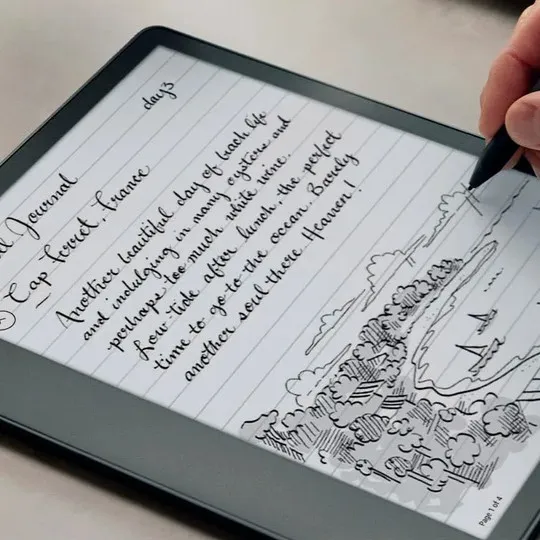 day3
Journal
Cap Ferret, France
Another beautiful day of beach life
and indulging in many oysters and
perhaps too much white wine.
Low tide after lunch, the perfect
time to go to the ocean. Barely
another soul there. Heaven!
Page 1 of 4